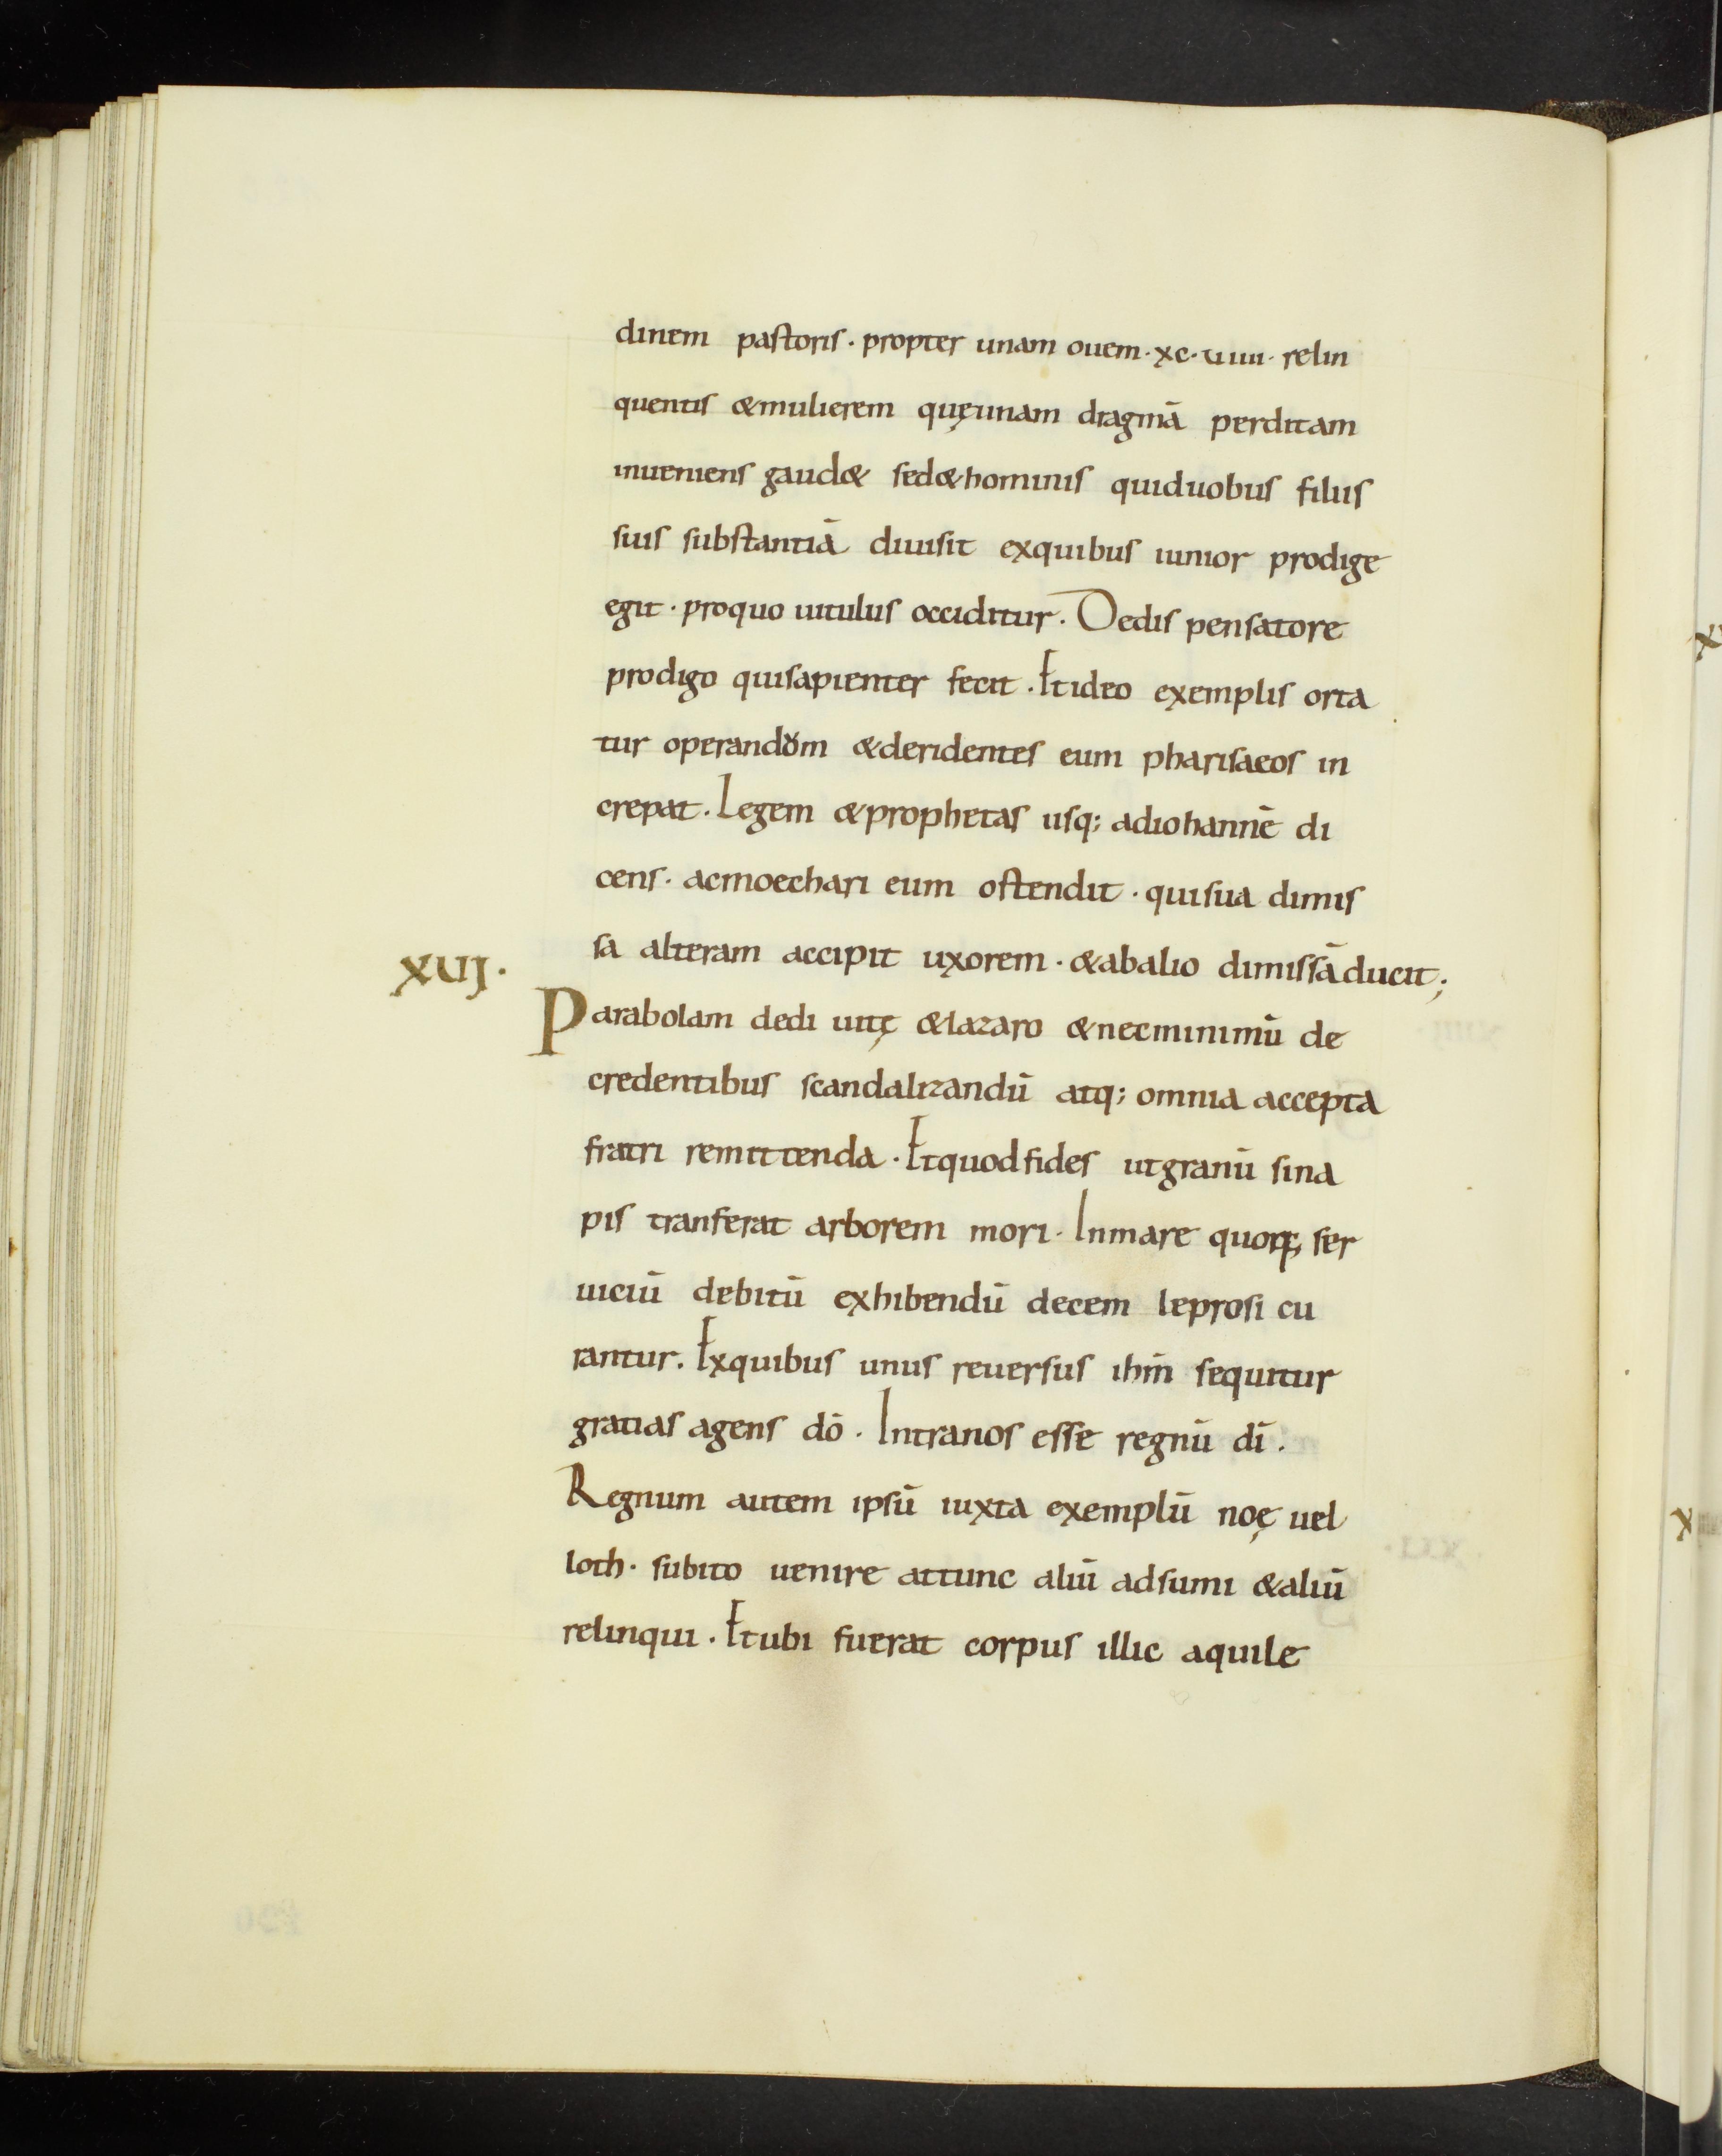 dinem pastoris · propter unam ouem · xc · uiiii · relin
quentis &mulierem quęunam dragmā perditam
inueniens gaud& sed&hominis quiduobus filiis
suis substantiā diuisit exquibus iunior prodige
egit · proquo uitulus occiditur. Dedis pensatore
prodigo quisapienter fecit. Etideo exemplis orta
tur operandŏm &deridentes eum pharisaeos in
crepat. Legem &prophetas usq; adiohannē di
cens · acmoechari eum ostendit · quisua dimis
sa alteram accipit uxorem · &abalio dimissāducit;
XUJ.
Parabolam dedi uitę &lazaro &necminimū de
credentibus scandalizandū atq; omnia accepta
fratri remittenda · Etquodfides utgranū sina
pis tranferat arborem mori · Inmare quoq; ser
uiciū debitū exhibendū decem leprosi cu
rantur. Exquibus unus reuersus ihm̄ sequitur
gratias agens dō · Intranos esse regnū dī.
Regnum autem ipsū iuxta exemplū noę uel
loth · subito uenire attunc aliū adsumi &aliū
relinqui · Etubi fuerat corpus illic aquile